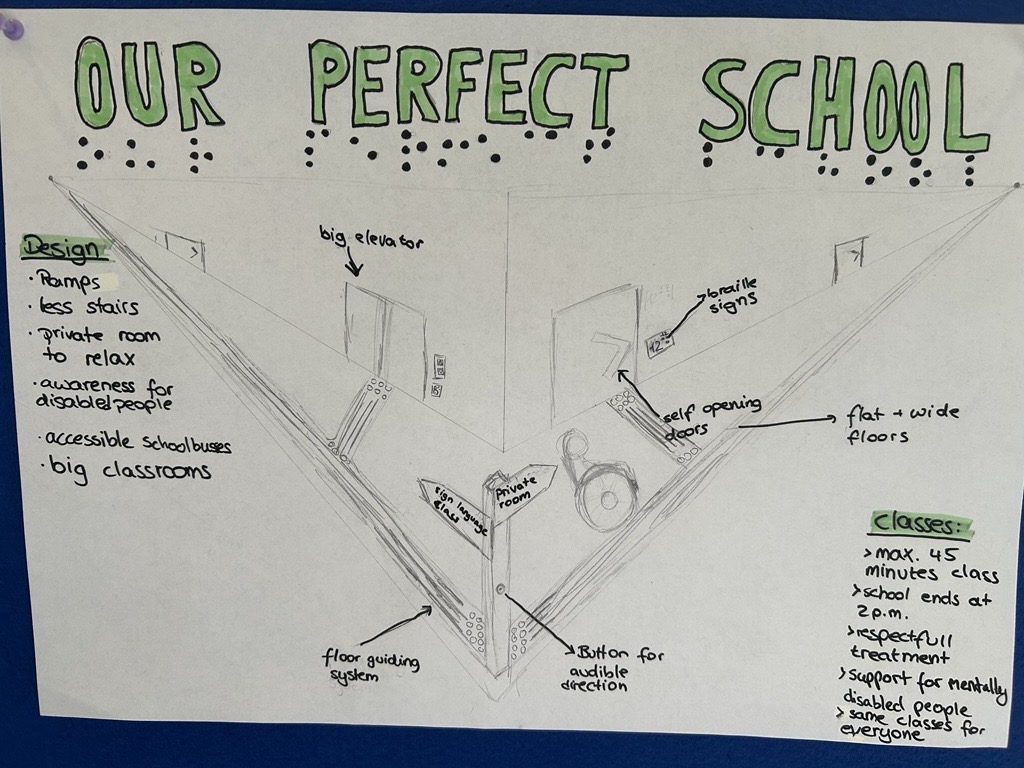 OUR PERFECT SCHOOL
Design
· Ramps
· less stairs
· private room
to relax
· awareness for
disabled people
· accessible schoolbuses
· big classrooms
big elevator
braille
signs
self opening
doors
flat + wide
floors
sign language
class
private
room
floor guiding
system
Button for
audible
direction
classes:
> max. 45
minutes class
> school ends at
2 p.m.
> respectfull
treatment
> support for mentally
disabled people
> same classes for
everyone